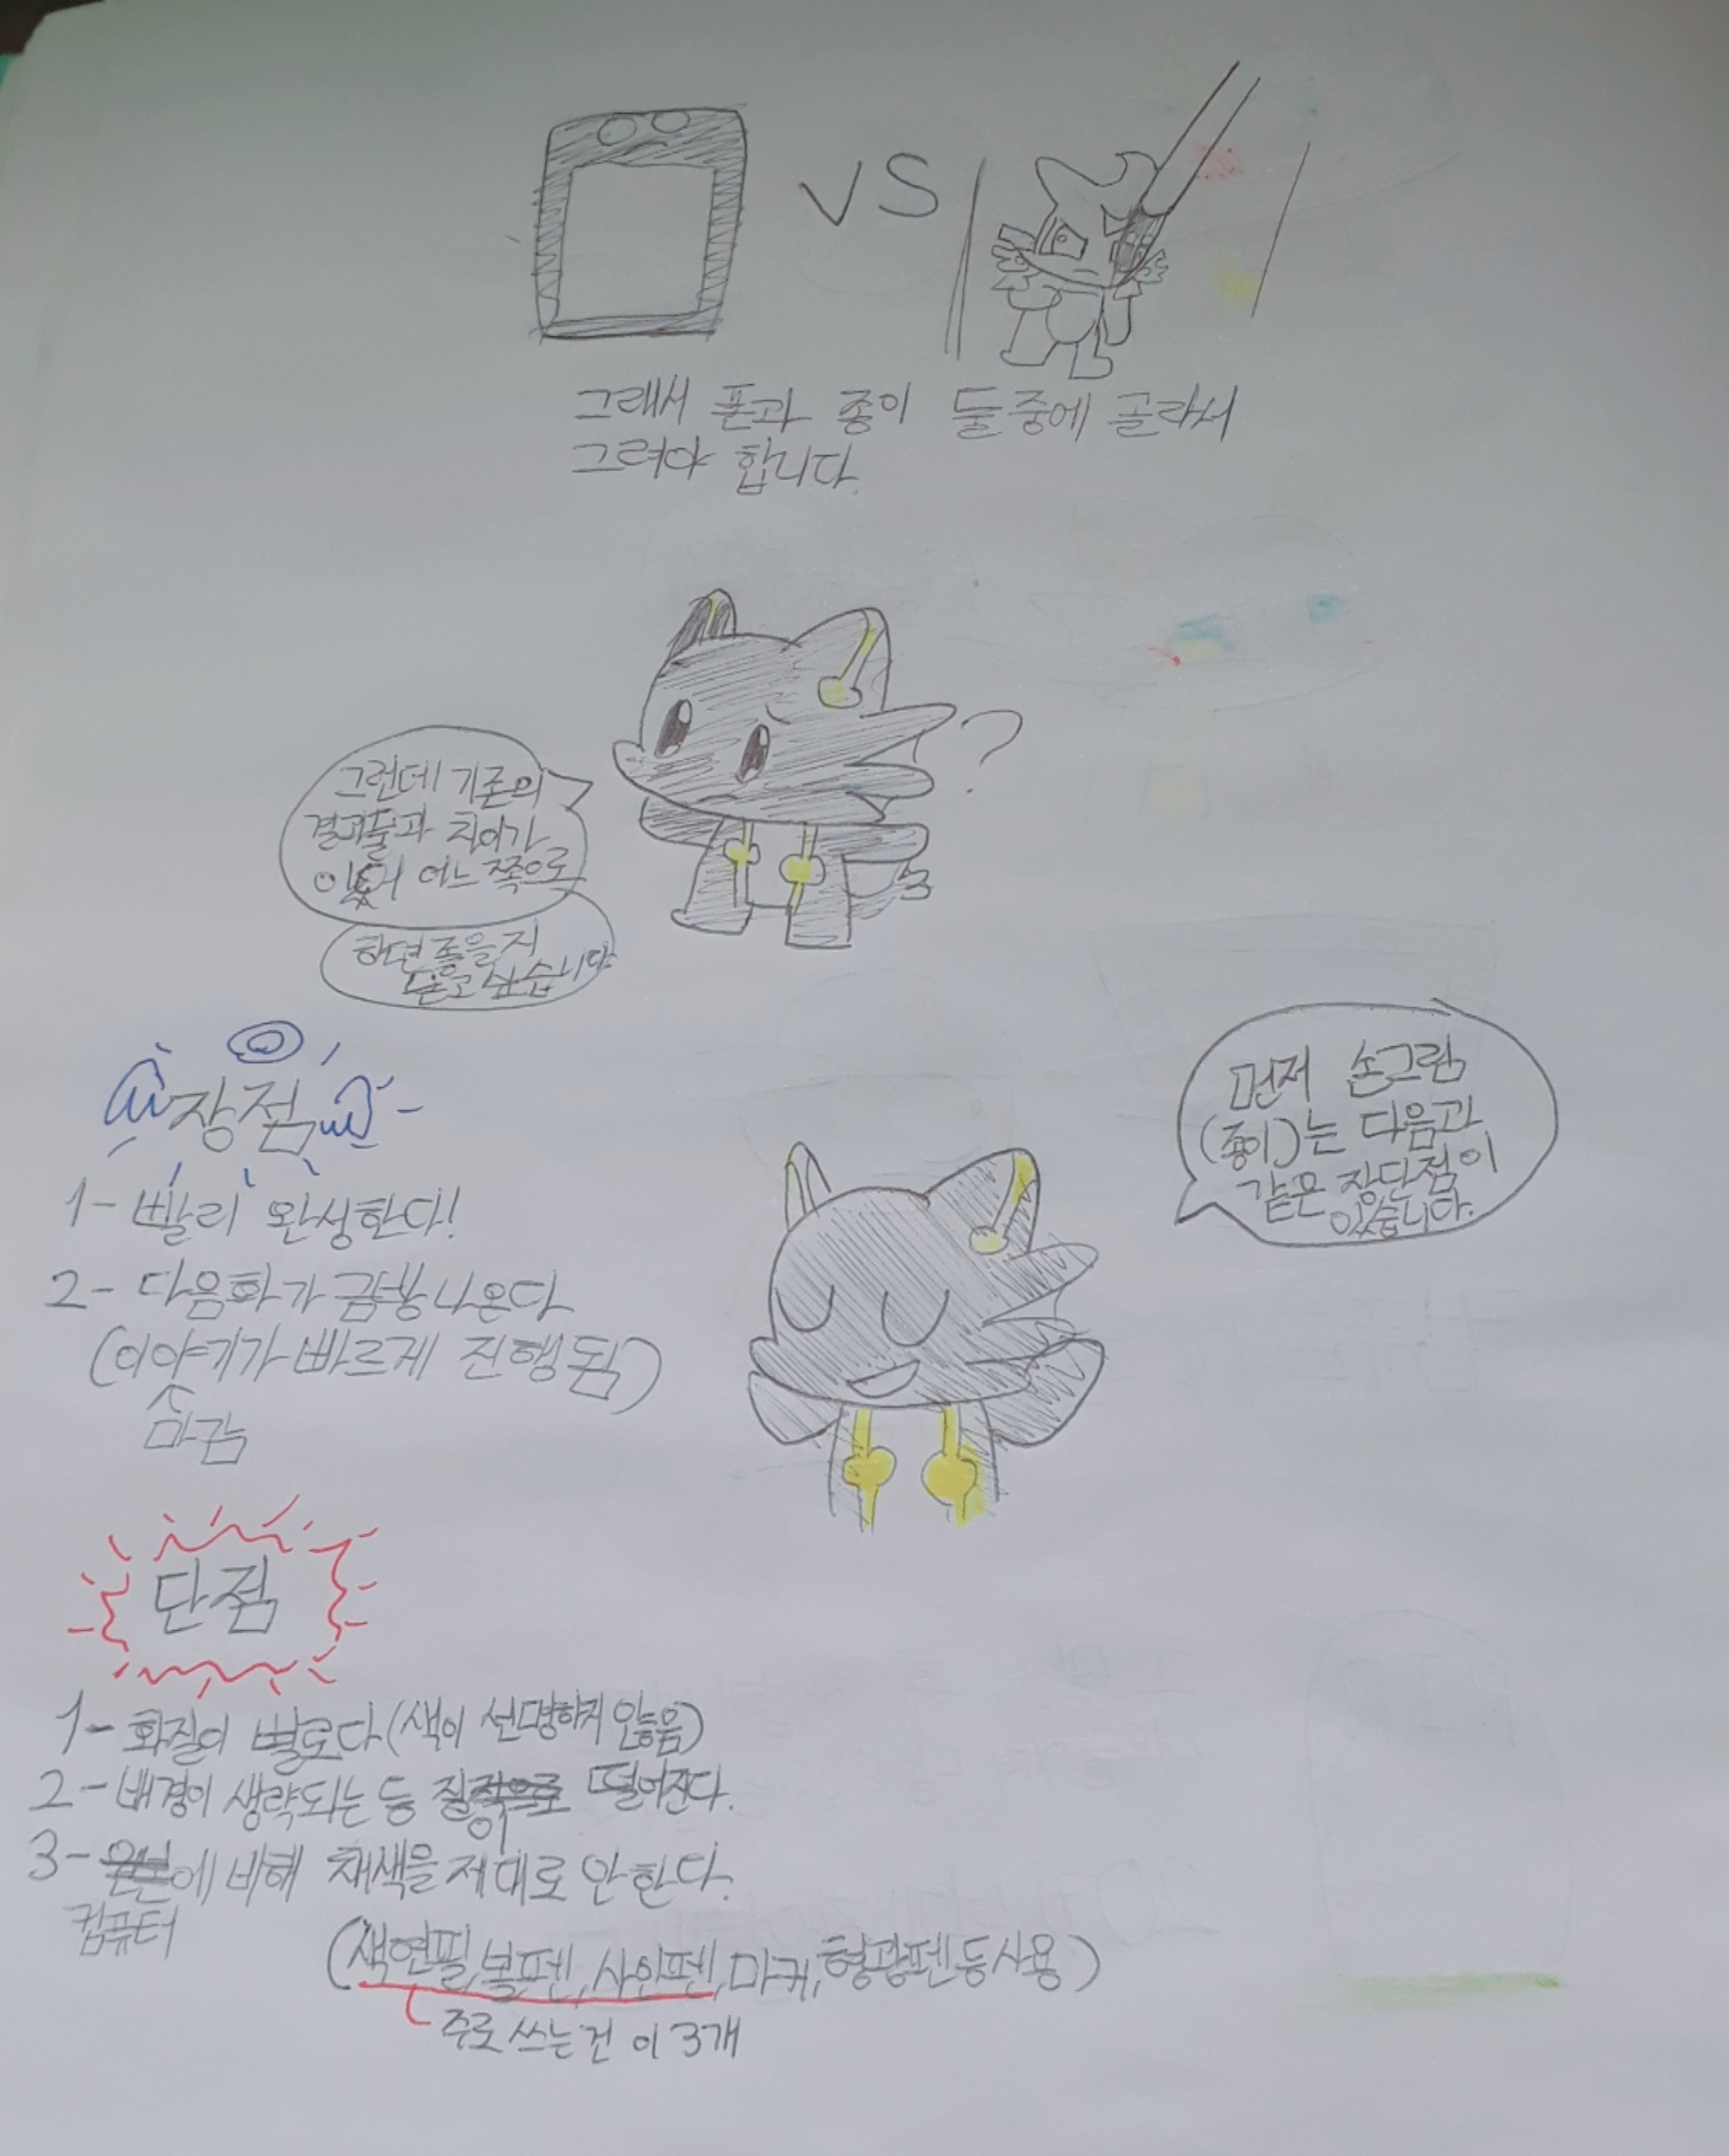 VS
그래서 폰과 종이 둘중에 골라서
그려야 합니다.
?
그런데 기존의
결과물과 차이가
있어 어느쪽으로
하면 좋을지
묻고 싶습니다
먼저 손그림
(종이)는 다음과
같은 장단점이
있습니다.
장점
1- 빨리 완성한다!
2- 다음화가 금방 나온다
(이야기가 빠르게 진행됨)
마감
단점
1- 화질이 별로다 (색이 선명하지 않음)
2- 배경이 생략되는 등 질이 떨어진다.
3- 에 비해 채색을 제대로 안한다.
컴퓨터
(색연필, 볼펜, 사인펜, 마커, 형광펜등 사용)
주로 쓰는건 이 3개